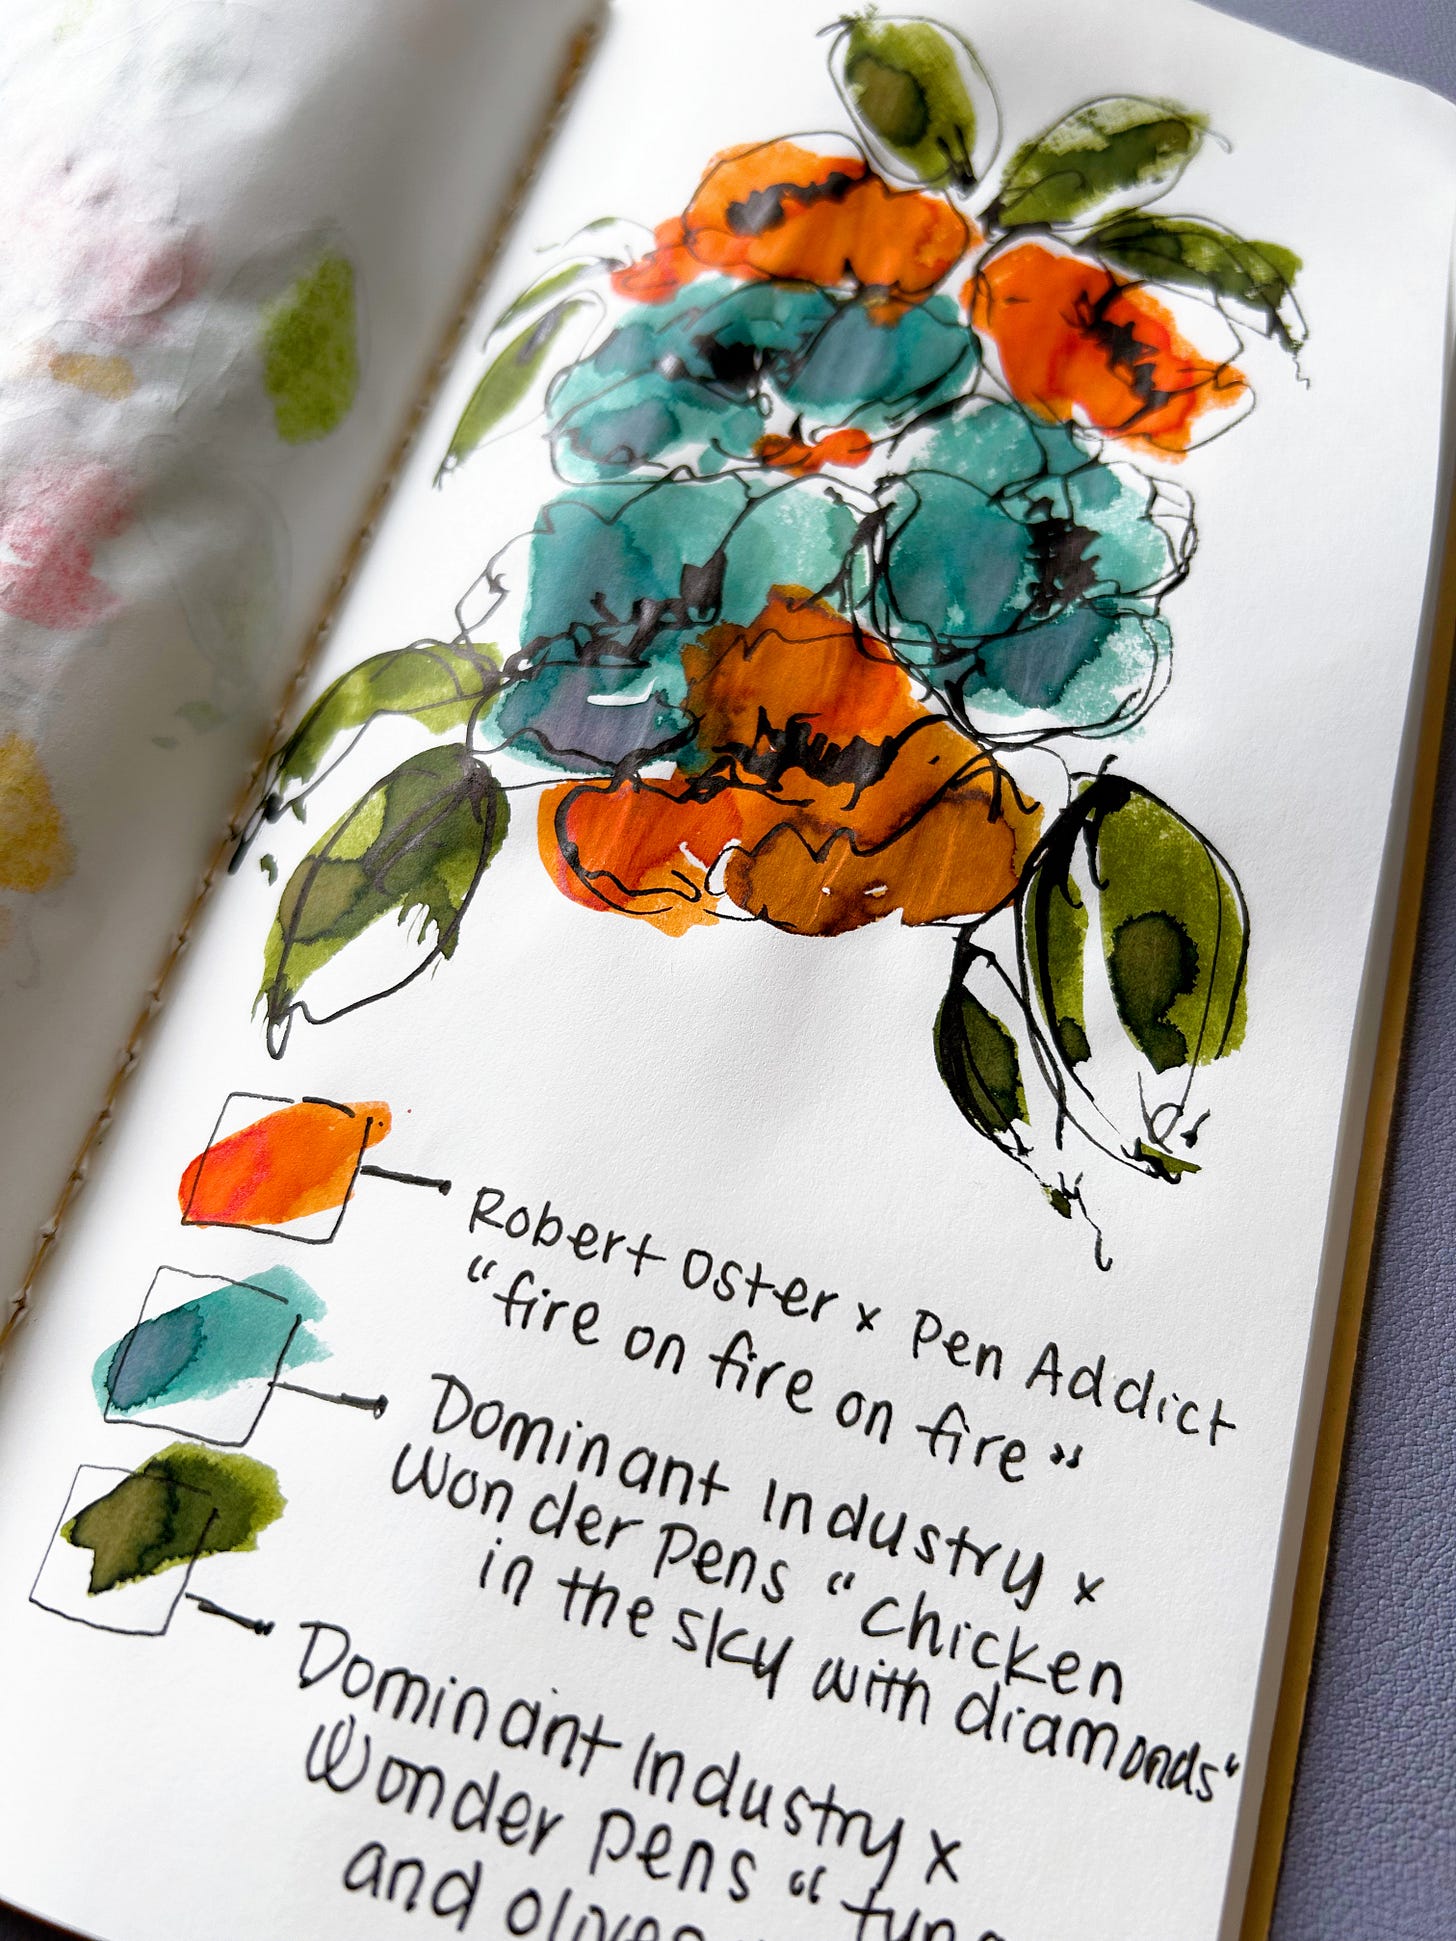 Robert Oster x Pen Addict
"fire on fire on fire"
Dominant Industry x
Wonder Pens "chicken
in the sky with diamonds"
Dominant Industry x
Wonder Pens "
and olives